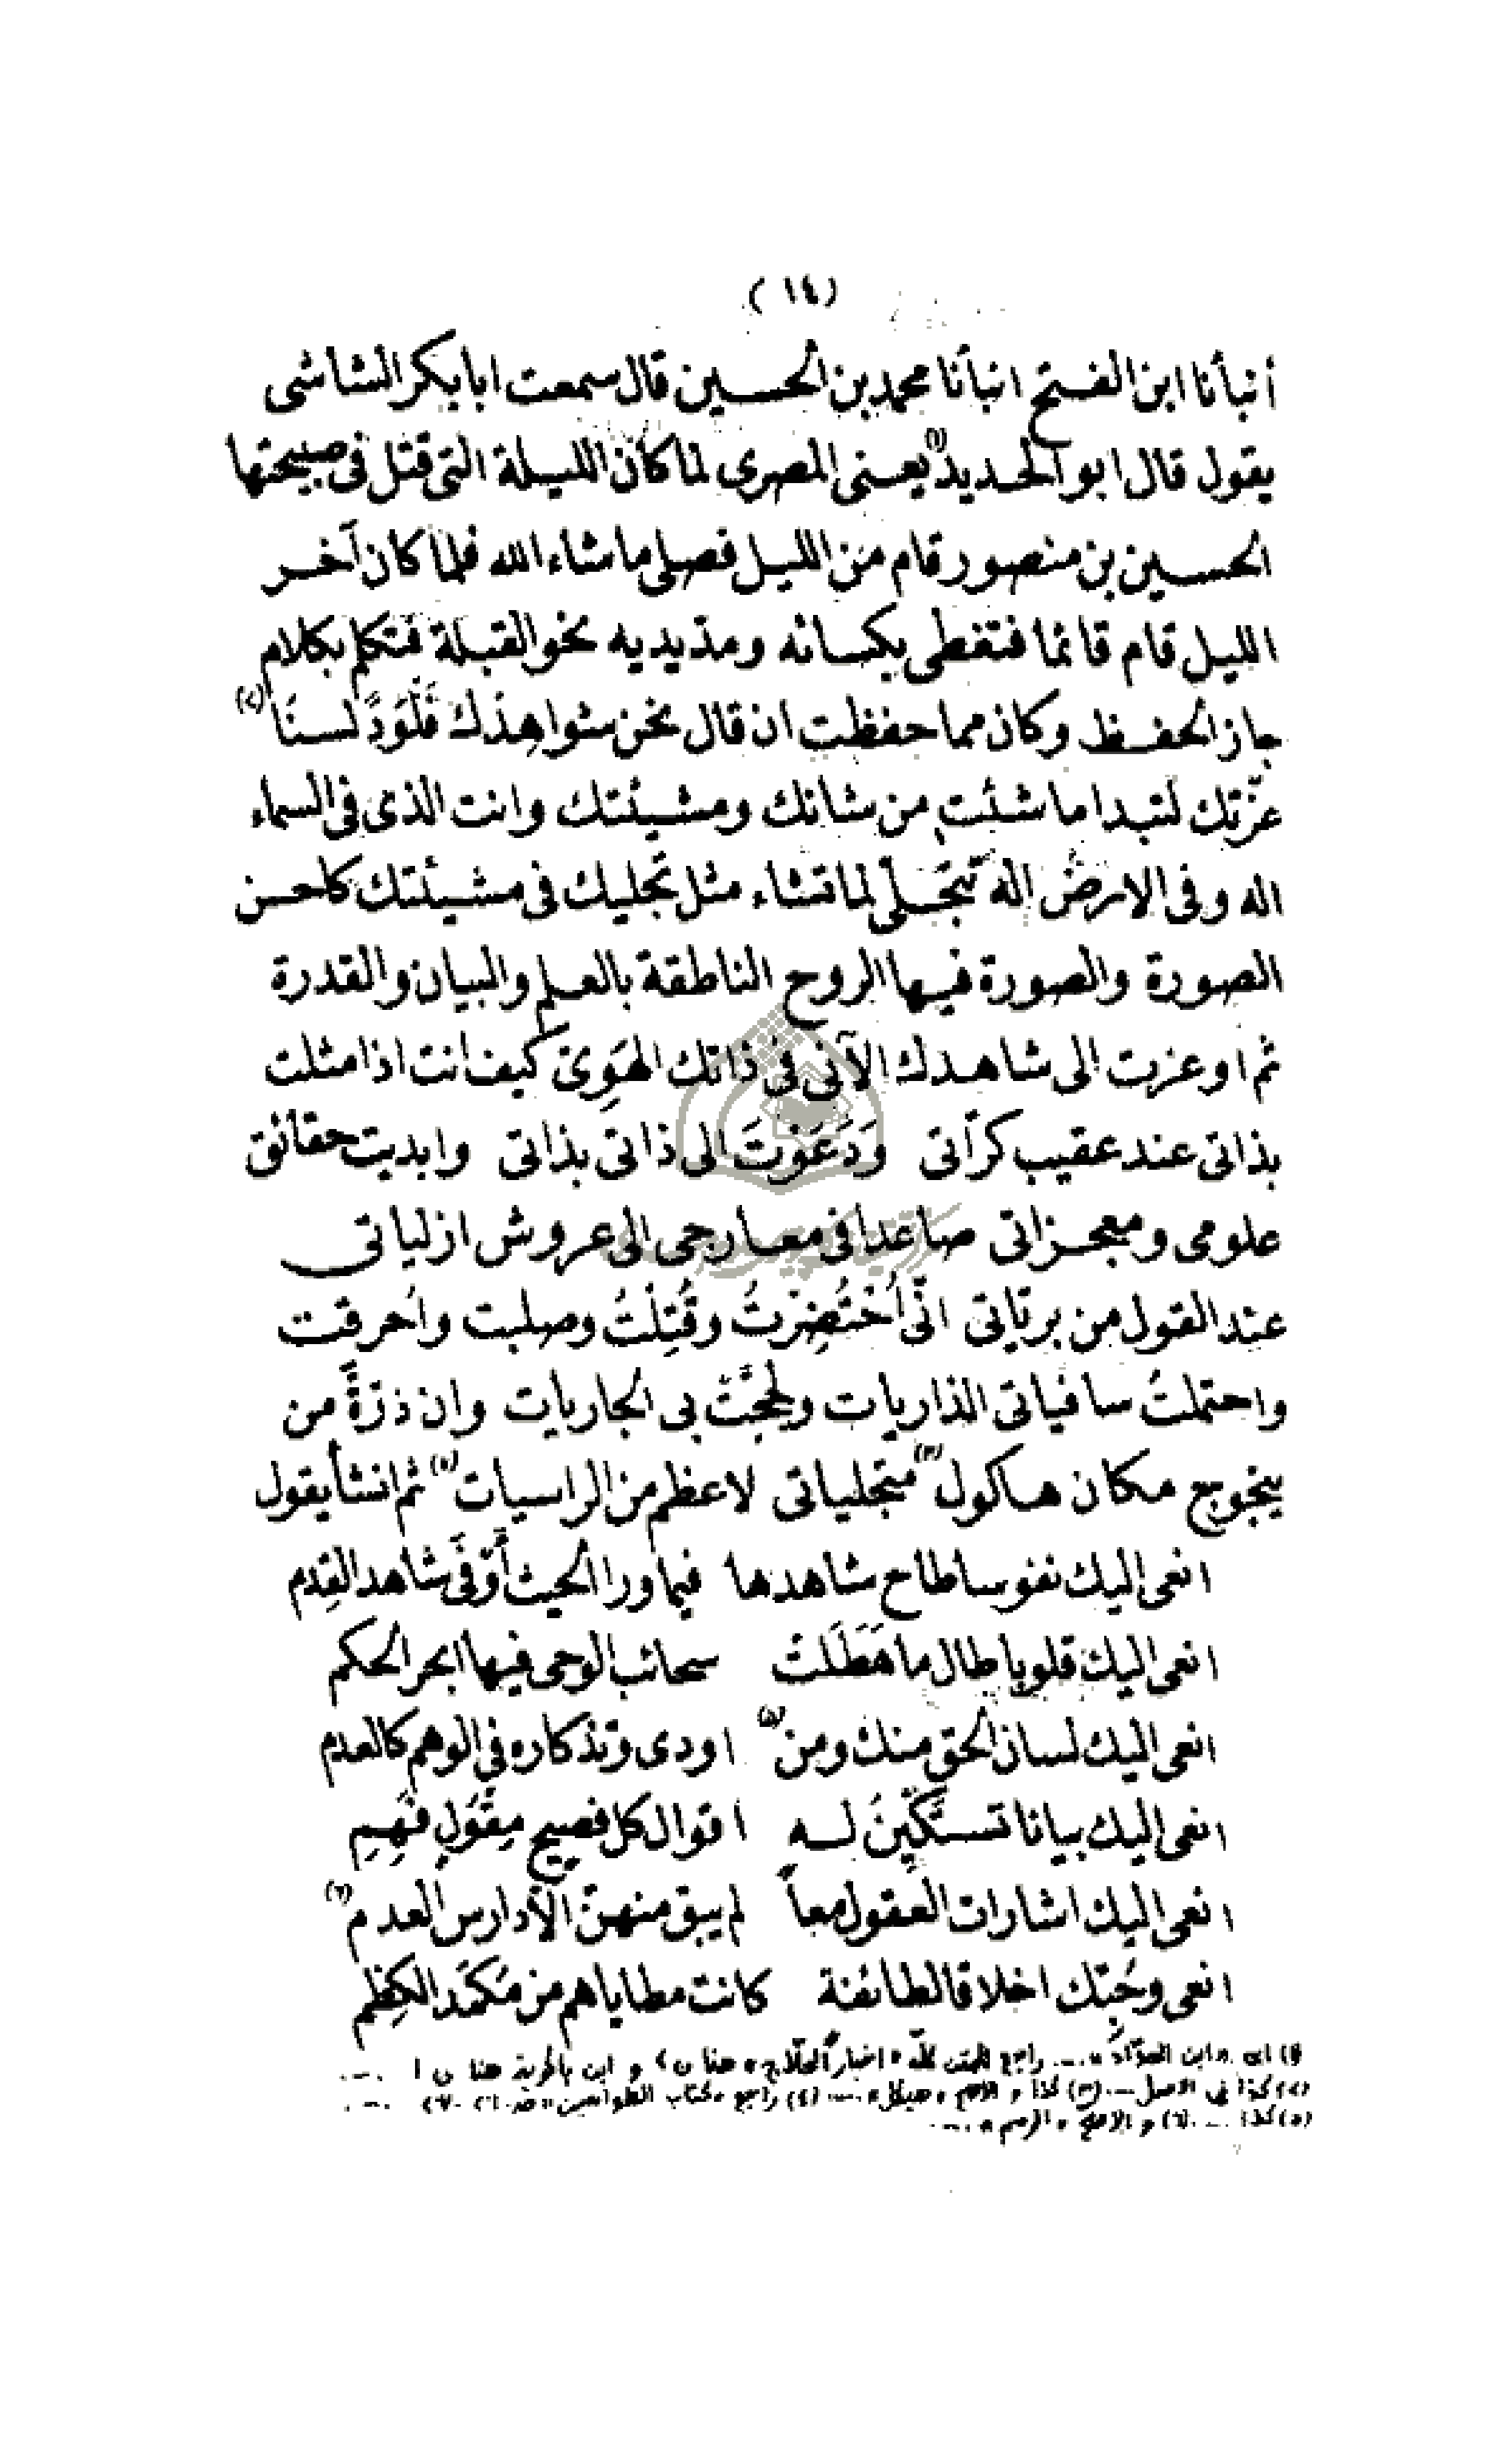 (١٤)
أنبأنا ابن الفتح انبأنا محمد بن الحسين قال سمعت ابا بكر الشاشى
يقول قال ابو الحديد(١) يعنى المصرى لما كان الليلة التى قتل فى صبيحتها
الحسين بن منصور قام من الليل فصلى ما شاء الله فلما كان آخر
الليل قام قائما فتغطى بكسائه ومدّ يديه نحو القبلة فتكلم بكلام
جاز الحفظ وكان مما حفظت ان قال نحن شواهِدُك فَلَوَدًّ لسنَا(٢)
عزّتك لتبدا ما شئت من شانك ومشيئتك وانت الذى فى السماء
اله وفى الارض اله تَتَجَلّى لما تشاء مثل تجليك فى مشيئتك كاحسن
الصورة والصورة فيها الروح الناطقة بالعلم والبيان والقدرة
ثم اوعزت الى شاهدك الآنى فى ذاتك الهَوِىّ كيف انت اذا مثلت
بذاتى عند عقيب كرّاتى وَدَعَوْتَ الى ذاتى بذاتى وابديت حقائق
علومى ومعجزاتى صاعدا فى معارجى الى عروش ازلياتى
عند القول من بريّاتى انّى أُخْتُضِرْتُ وقُتِلْتُ وصلبت واُحرقت
واحتملتُ سافياتى الذاريات ولججَّتْ بى الجاريات وان ذرّةً من
ينجوج مكان هاكول(٣) متجلياتى لاعظم من الراسيات(٤) ثم انشأ يقول
انعى اليك نفوسا طاح شاهدها فيما ورا الحيث أوْ فى شاهد القِدم
انعى اليك قلوبا طال ما هَطَلَتْ سحائب الوحى فيها ابحر الحكم
انعى اليك لسان الحق منك ومن(٥) اودى وتذكاره فى الوهم كالعدم
انعى اليك بيانا تستَكِينُ لـه اقوال كل فصيح مِقْوَلٍ فَهِمِ
انعى اليك اشارات العقول معاً لم يبق منهنّ الّا دارس العدم(٦)
انعى وحُبِّك اخلاقا لطائفة كانت مطاياهم من مَكْمَد الكِظم
(١) اى «ابن الحدّاد» ... راجع المتن كلّه «اخبار الحلّاج» هنا ن ٢ و ابن باكويه هنا ن ١ ...
(٢) كذا فى الاصل ... (٣) كذا و الاصح «هيكل» ... (٤) راجع «كتاب الطواسين»
(٥) كذا ... (٦) و الاصح «الرمم» ...